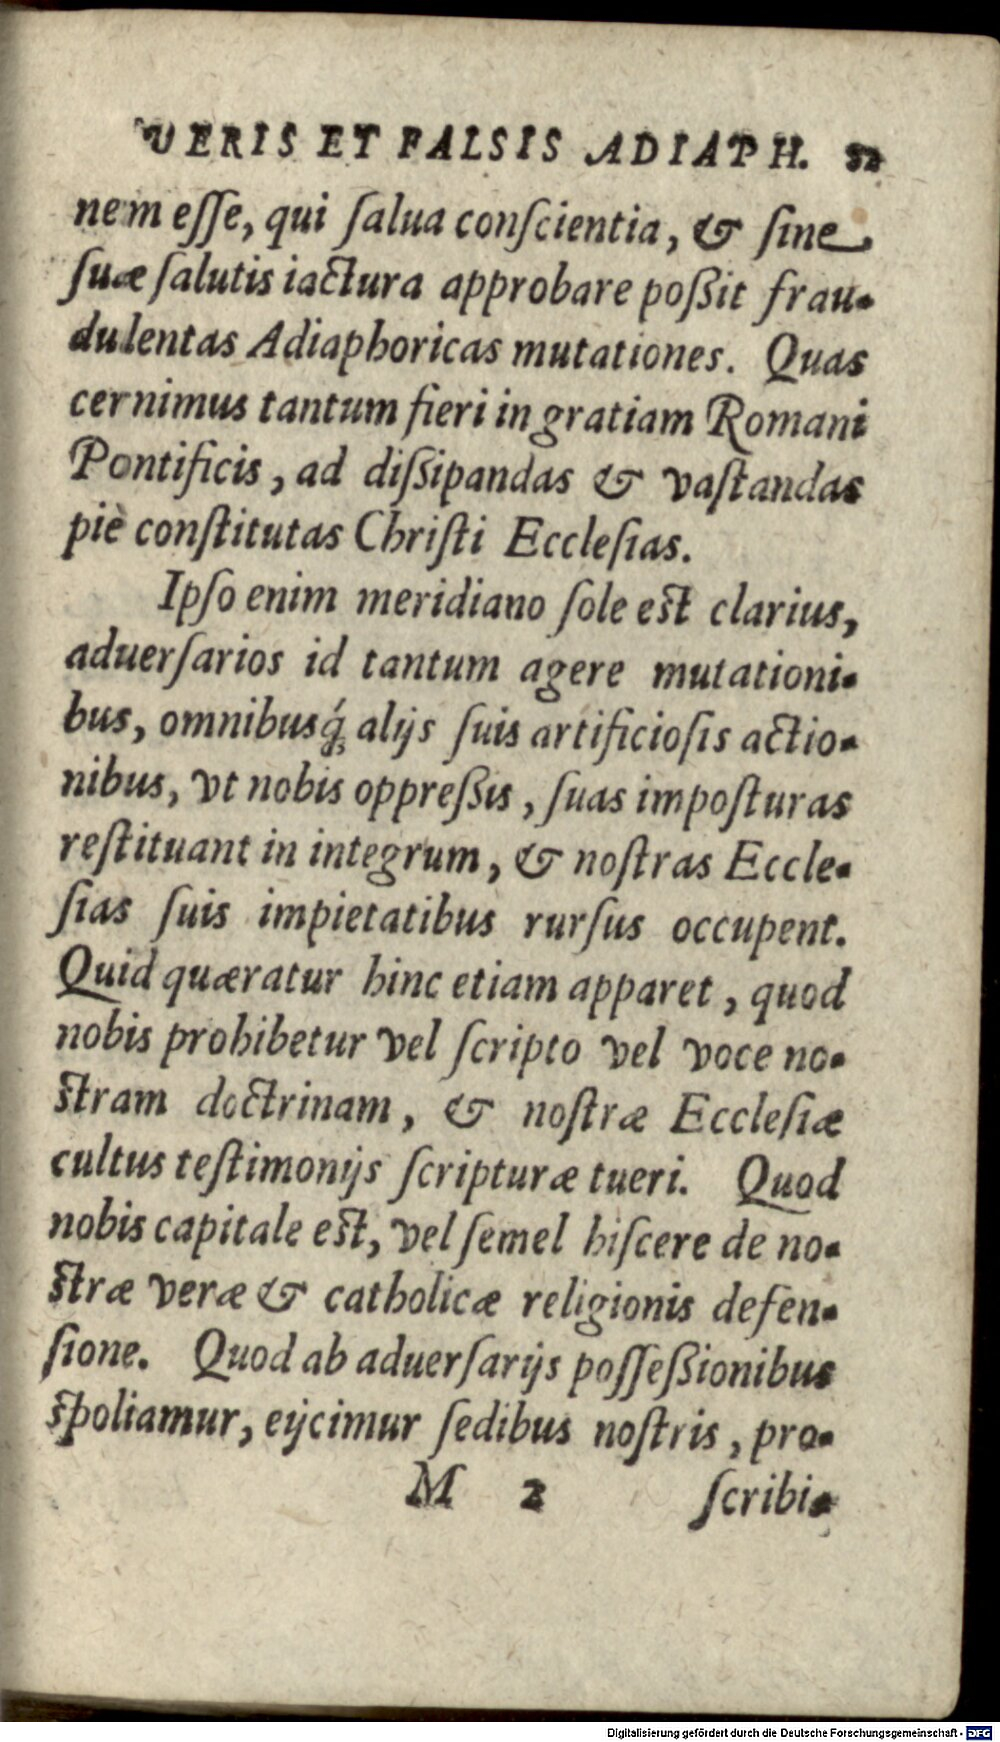 VERIS ET FALSIS ADIAPH. 52
nem eſſe, qui ſalua conſcientia, & ſine
ſuæ ſalutis iactura approbare poßit frau-
dulentas Adiaphoricas mutationes. Quas
cernimus tantum fieri in gratiam Romani
Pontificis, ad dißipandas & vaſtandas
piè conſtitutas Chriſti Eccleſias.
Ipſo enim meridiano ſole eſt clarius,
aduerſarios id tantum agere mutationi-
bus, omnibusq́; alijs ſuis artificioſis actio-
nibus, vt nobis oppreßis, ſuas impoſturas
reſtituant in integrum, & noſtras Eccle-
ſias ſuis impietatibus rurſus occupent.
Quid quæratur hinc etiam apparet, quod
nobis prohibetur vel ſcripto vel voce no-
ſtram doctrinam, & noſtræ Eccleſiæ
cultus teſtimonijs ſcripturæ tueri. Quod
nobis capitale eſt, vel ſemel hiſcere de no-
ſtræ veræ & catholicæ religionis defen-
ſione. Quod ab aduerſarijs poſſeßionibus
ſpoliamur, eijcimur ſedibus noſtris, pro-
M 2 ſcribi-
Digitalisierung gefördert durch die Deutsche Forschungsgemeinschaft - DFG